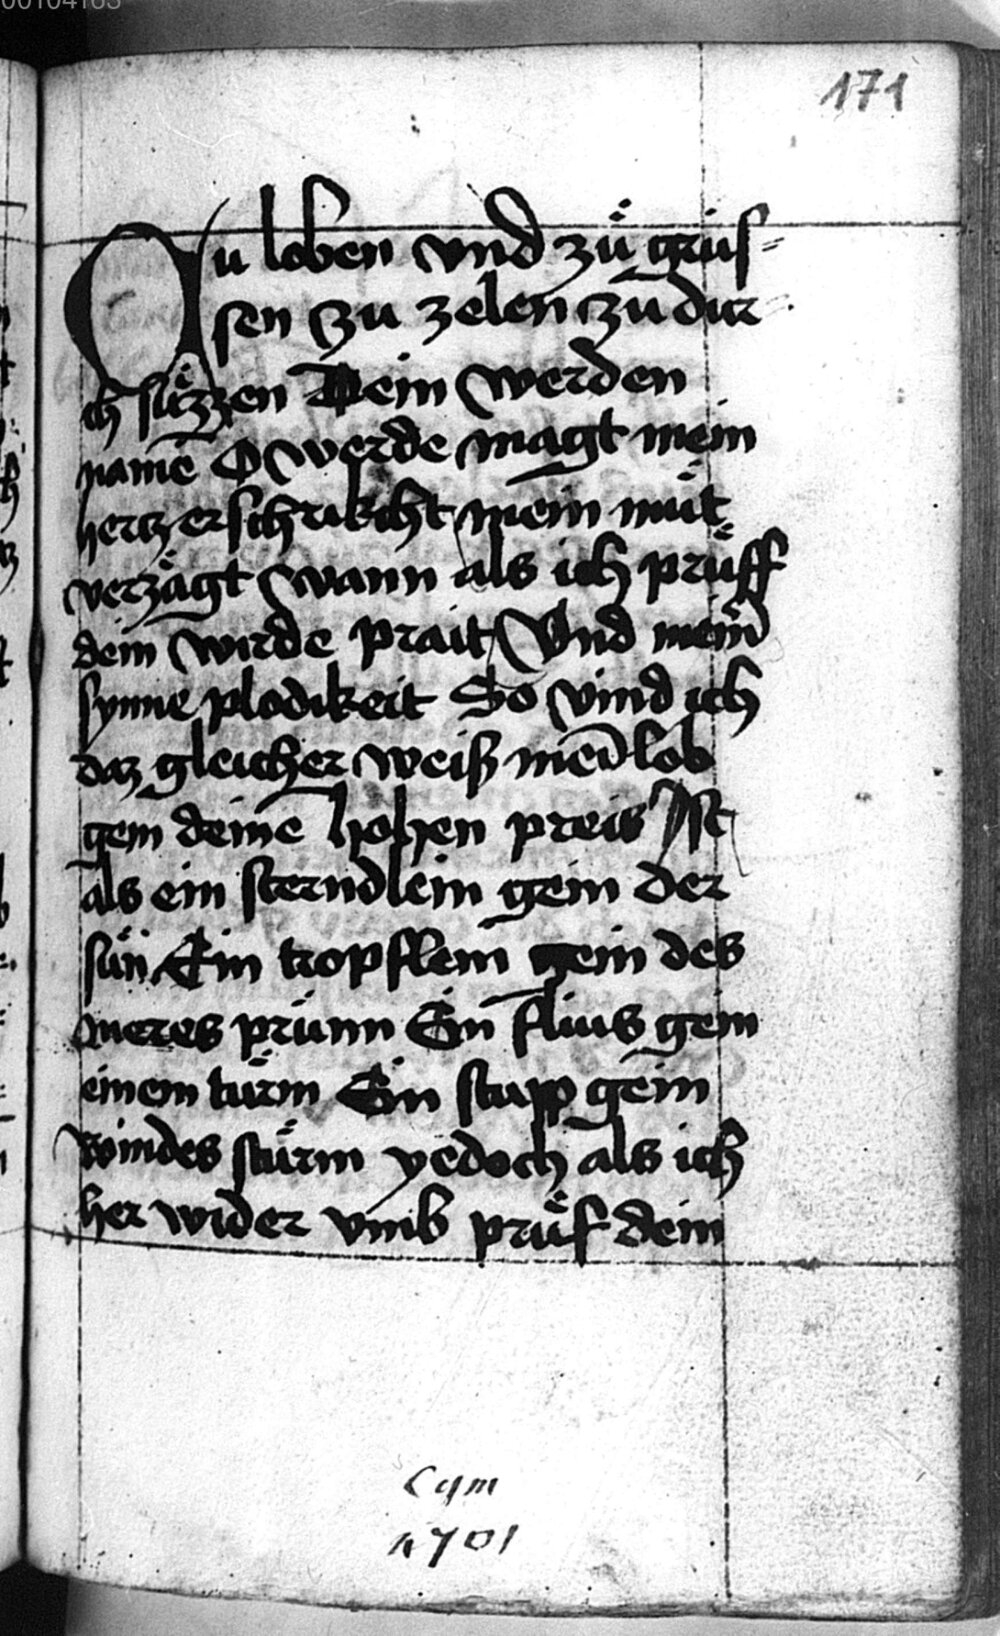 00104163
171
Zu loben vnd zů grüs=
sen Zu zelen Zu dur
ch süzzen Dein werden
namē O werde magt mein
hertz erschrikcht mein můt
verzagt wann als ich průff
dein wirde prait Vnd mein̄
synne plodikeit So vind ich
daz gleicher weiß mein lob
gein deinē hohen preis Ist
als ein sterndlein gein der
sůn Ein tropflein gein des
meres prünn Ein fluis gein
einem türm Ein stupp gein
windes stůrm yedoch als ich
her wider vmb průf dein
Cgm
1701